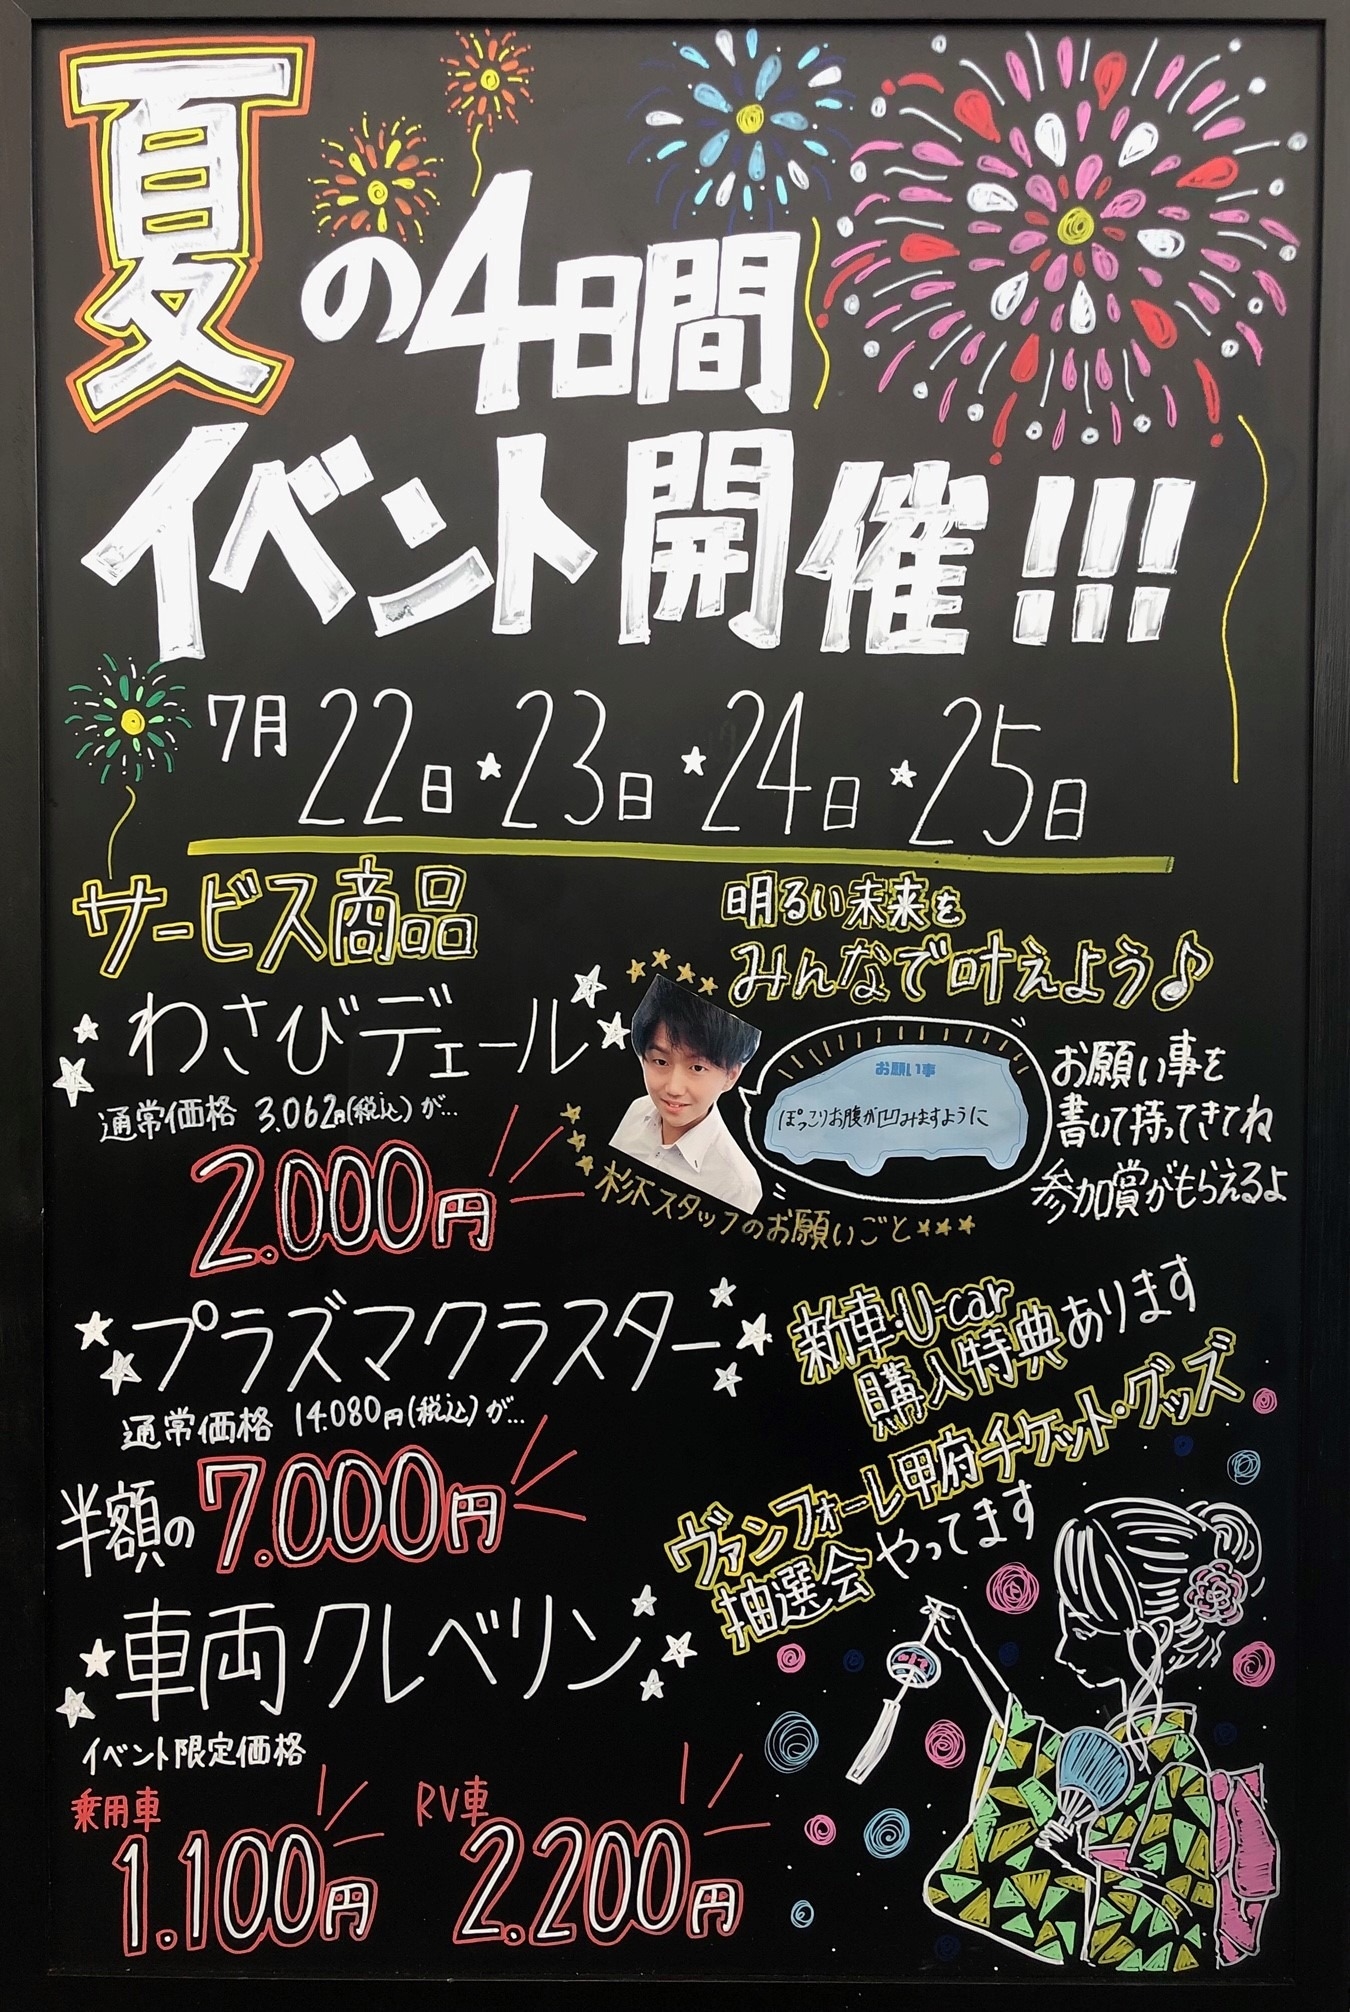 夏の4日間
イベント開催!!!
7月 22日★23日★24日★25日
サービス商品
わさびデェール
通常価格 3.062円(税込)が…
2.000円
明るい未来を
みんなで叶えよう♪
お願い事
ぽっこりお腹が凹みますように
お願い事を
書いて持ってきてね
参加賞がもらえるよ
杉本スタッフのお願いごと★★★
プラズマクラスター
通常価格 14.080円(税込)が…
半額の7.000円
新車・U-car
購入特典あります
ヴァンフォーレ甲府チケット・グッズ
抽選会やってます
車両クレベリン
イベント限定価格
乗用車
1.100円
RV車
2.200円